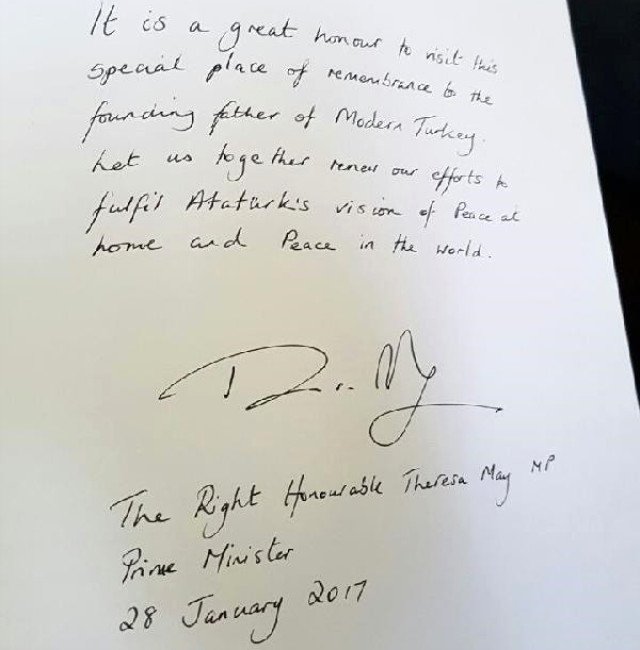 It is a great honour to visit this
special place of remembrance to the
founding father of Modern Turkey.
Let us together renew our efforts to
fulfil Atatürk's vision of Peace at
home and Peace in the world.
The Right Honourable Theresa May MP
Prime Minister
28 January 2017